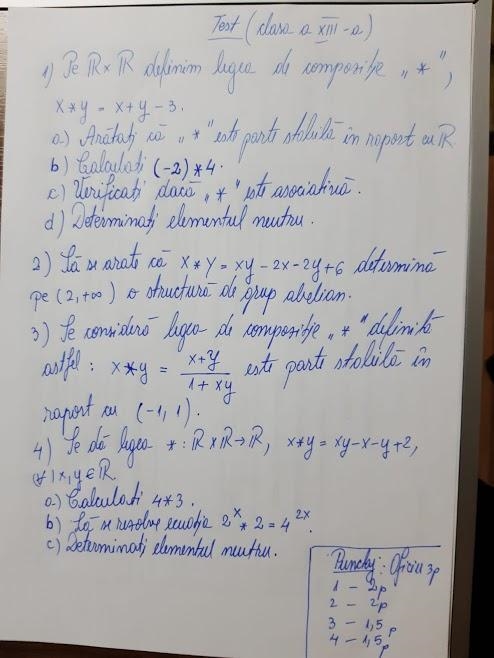 Test (clasa a XIII-a)
1) Pe ℝ×ℝ definim legea de compoziție „*",
x*y = x+y-3.
a) Arătați că „*" este parte stabilă în raport cu ℝ.
b) Calculați (-2)*4.
c) Verificați dacă „*" este asociativă.
d) Determinați elementul neutru.
2) Să se arate că x*y = xy-2x-2y+6 determină
pe (2,+∞) o structură de grup abelian.
3) Se consideră legea de compoziție „*" definită
astfel: x*y = (x+y)/(1+xy) este parte stabilă în
raport cu (-1, 1).
4) Se dă legea *: ℝ×ℝ→ℝ, x*y = xy-x-y+2,
∀ x,y∈ℝ.
a) Calculați 4*3.
b) Să se rezolve ecuația 2^x * 2 = 4^2x.
c) Determinați elementul neutru.
Punctaj: Oficiu 3p
1 – 2p
2 – 2p
3 – 1,5p
4 – 1,5p